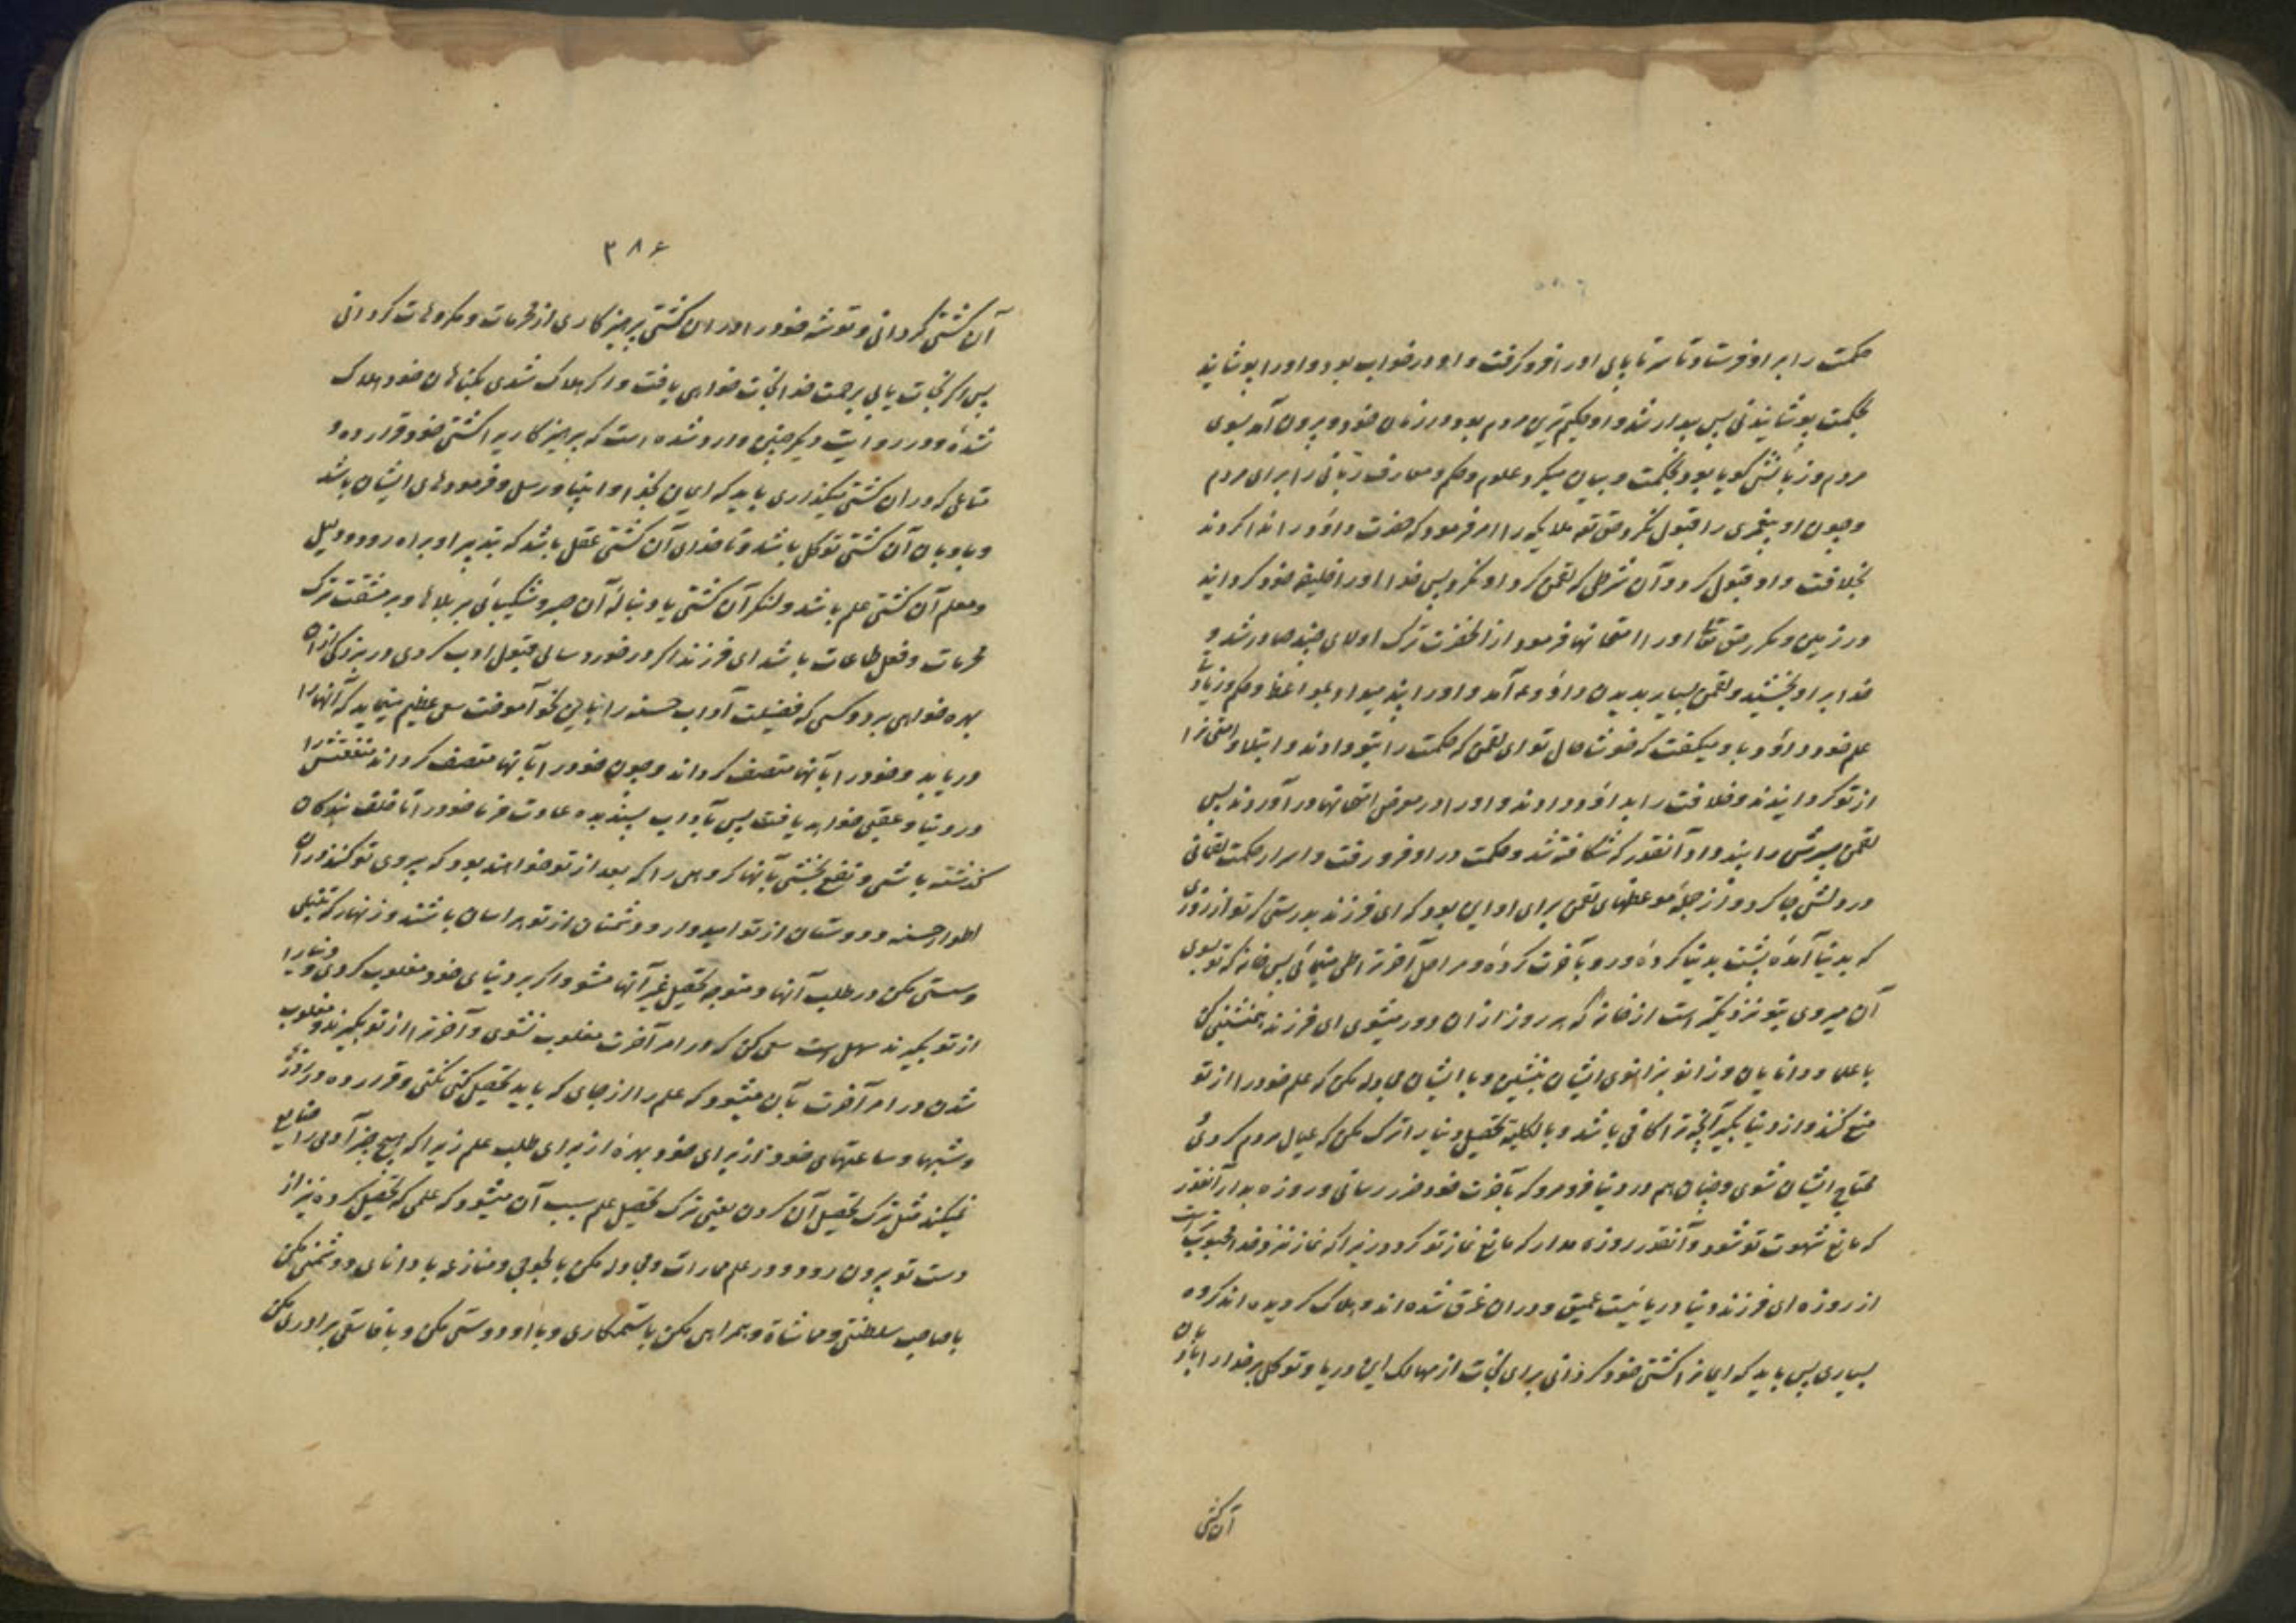 حکمت را بر او فرستاد و تا سر تا پای او را فرو گرفت و او در خواب بود و او را پوشانید
بحکمت پوشانیدنی پس بیدار شد و او حکیم‌ترین مردم بود در زمان خود و بیرون آمد بسوی
مردم و زبانش گویا بود بحکمت و بیان میکرد علوم و حکم و معارف ربانی را برای مردم
و چون او پیغمبری را قبول نکرد حق تع ملایکه را امر فرمود که حضرت داؤد را ندا کردند
بخلافت و او قبول کرد و آن شرطی که لقمن کرد او نکرد پس خدا او را خلیفه خود گردانید
در زمین و مکرر حق تعا او را امتحانها فرمود از آنحضرت ترک اولای چند صادر شد و
خدا بر او بخشید و لقمن بسیار بدیدن داؤد ع آمد و او را پند میداد بمواعظ و حکم و زیادتی
علم خود و داؤد باو میکفت که خوشا حال تو ای لقمن که حکمت را بتو دادند و ابتلا و امتحانرا
از تو کردانیدند و خلافت را بداؤد دادند و او را در معرض امتحانها در آوردند پس
لقمن پسرش را پند داد آنقدر که شکافته شد و حکمت در او فرو رفت و اسرار حکمت لقمانی
در دلش جا کرد و از جمله موعظهای لقمن برای او این بود که ای فرزند بدرستی که تو از روزی
که بدنیا آمدهٔ پشت بدنیا کردهٔ و رو بآخرت کردهٔ و مراحل آخرترا طی مینمائی پس خانه که تو بسوی
آن میروی بتو نزدیکتر است از خانه که هر روز از ان دور میشوی ای فرزند همنشینی کن
با علما و دانایان و زانو بزانوی ایشان بنشین و با ایشان مجادله مکن که علم خود را از تو
منع کنند و از دنیا بگیر آنچه ترا کافی باشد و بالکلیه تحصیل دنیا را ترک مکن که عیال مردم کردی
محتاج ایشان شوی و چنان هم در دنیا فرو مرو که بآخرت خود ضرر رسانی و روزه بدار آنقدر
که مانع شهوت تو شود و آنقدر روزه مدار که مانع نماز تو کردد زیرا که نماز نزد خدا محبوبتر است
از روزه ای فرزند دنیا دریائیست عمیق و در ان غرق شده اند و هلاک کردیده اند کروه
بسیاری پس باید که ایمانرا کشتی خود کردانی برای نجات از مهالک این دریا و توکل بر خدا را بادبان
آن کشتی
۳۸۶
آن کشتی کردانی و توشه خود را در ان کشتی پرهیزکاری از محرمات و مکروهات کردانی
پس اکر نجات یابی برحمت خدا نجات خواهی یافت و اکر هلاک شدی بکناهان خود هلاک
شدهٔ و در روایت دیکر چنین وارد شده است که پرهیزکاریرا کشتی خود قرار ده و
متاعی که در ان کشتی میکذاری باید که ایمان بخدا و انبیا و رسل و فرمودهای ایشان باشد
و بادبان آن کشتی توکل باشد و ناخدای آن کشتی عقل باشد که بتدبیر او براه رود و دلیل
و معلم آن کشتی علم باشد و لنکر آن کشتی یا دنبالهٔ آن صبر و شکیبائی بر بلاها و بر مشقت ترک
محرمات و فعل طاعات باشد ای فرزند اکر در خورد سالی قبول ادب کردی در بزرکی از ان
بهره خواهی برد و کسی که فضیلت آداب حسنه را بیابد نحو آموخت سعی عظیم مینماید که آنها را
دریابد و خود را بآنها متصف کرداند و چون خود را بآنها متصف کرداند منفعتش را
در دنیا و عقبی خواهد یافت پس بآداب پسندیده عادت فرما خود را تا خلف نیکان
کذشته باشی و نفع بخشی بآنها کروهی را که بعد از تو خواهند بود که پیروی تو کنند در آن
اطوار حسنه و دوستان از تو امیدوار و دشمنان از تو هراسان باشند و زنهار که تنبلی
و سستی مکن در طلب آنها و متوجه تحصیل غیر آنها مشو و اکر بر دنیای خود مغلوب کردی و دنیا را
از تو بکیرند سهل است سعی کن که در امر آخرت مغلوب نشوی و آخرترا از تو نکیرند و مغلوب
شدن در امر آخرت بآن میشود که علم را از جای که باید تحصیل کنی نکنی و قرار ده در روزها
و شبها و ساعتهای خود از برای خود بهرهٔ از برای طلب علم زیرا که هیچ چیز آدمی را ضایع
نمیکند مثل ترک تحصیل آن کردن یعنی ترک تحصیل علم سبب آن میشود که علمی که تحصیل کرده نیز از
دست تو بیرون رود و در علم مجارات و مجادله مکن با لجوجی و منازعه با دانای و دشمنی مکن
با صاحب سلطنتی و مماشاة و همراهی مکن با ستمکاری و با او دوستی مکن و با فاسقی برادری مکن